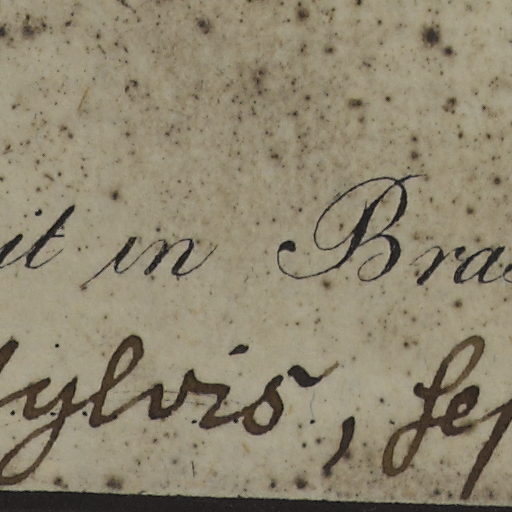 it in Bras
sylvis, sep